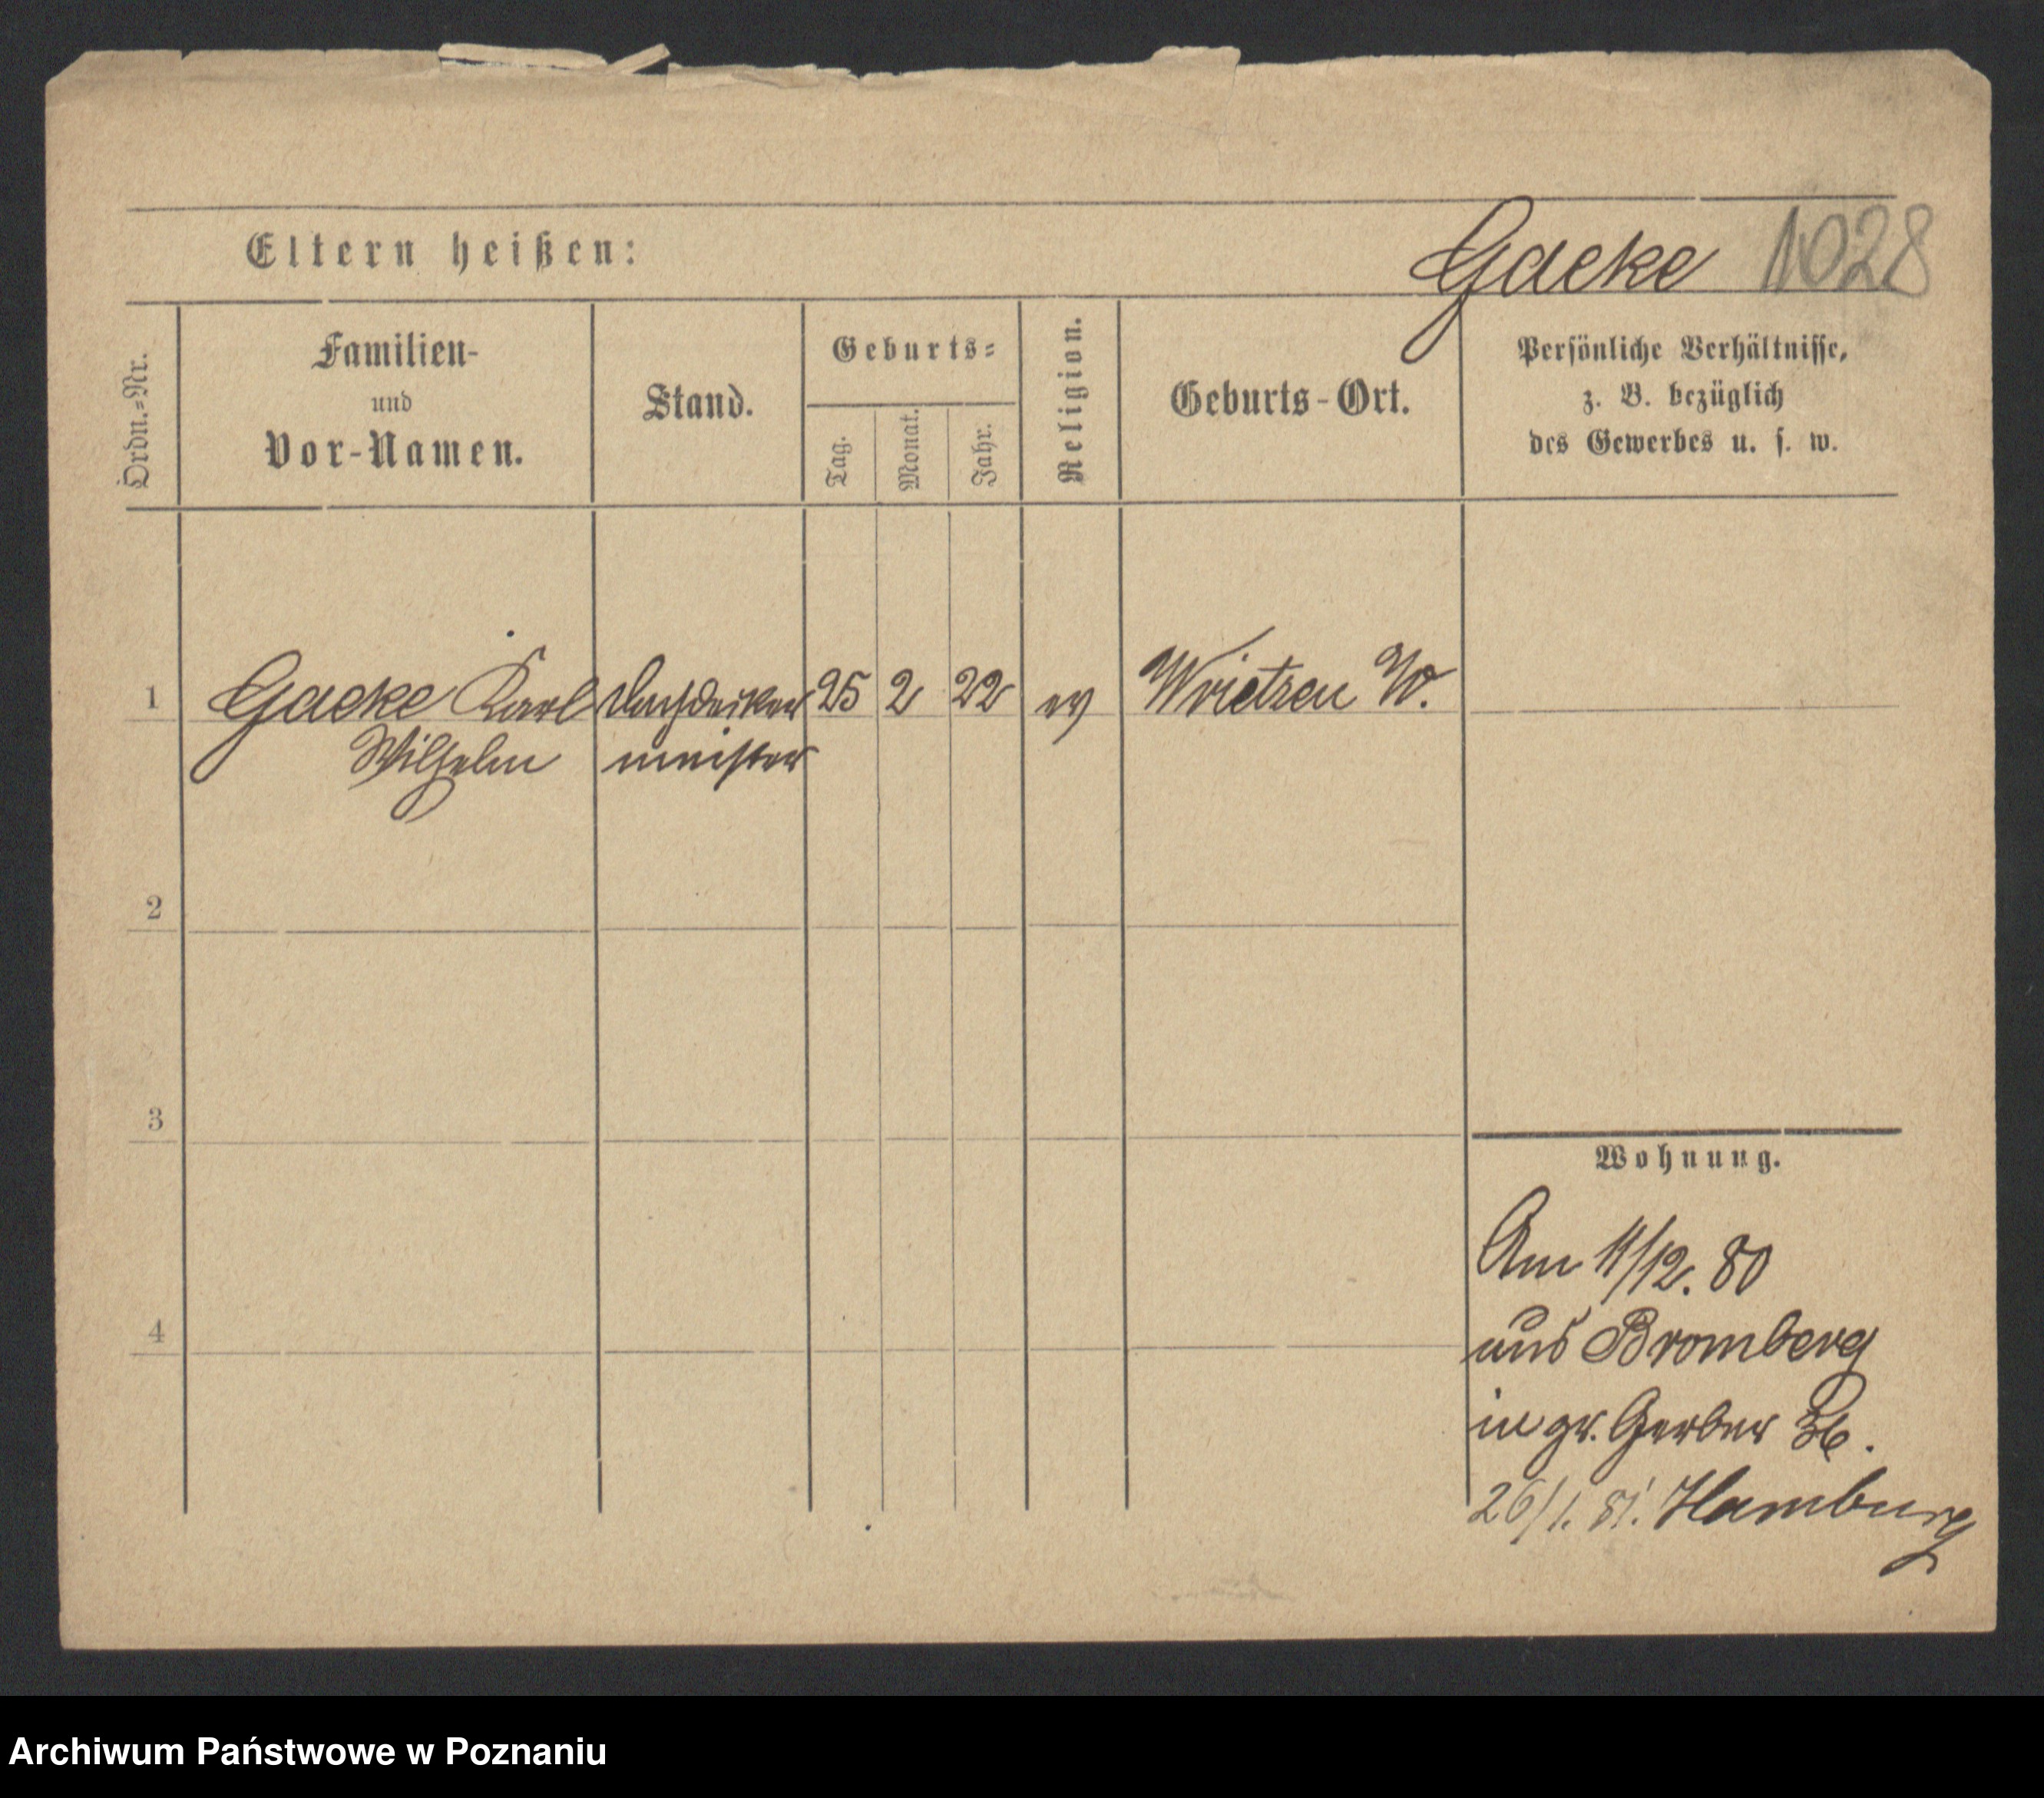 Eltern heißen: Gaeke 1028
Ordn.-Nr. Familien- und Vor-Namen. Stand. Geburts- Tag. Monat. Jahr. Religion. Geburts-Ort. Persönliche Verhältnisse, z. B. bezüglich des Gewerbes u. s. w.
1 Gaeke Karl Dachdecker 25 2 22 ev Wrietzen W.
Wilhelm meister
2
3
Wohnung.
Am 11/12. 80
4
aus Bromberg
in gr. Gerber 36.
26/1. 81. Hamburg
Archiwum Państwowe w Poznaniu